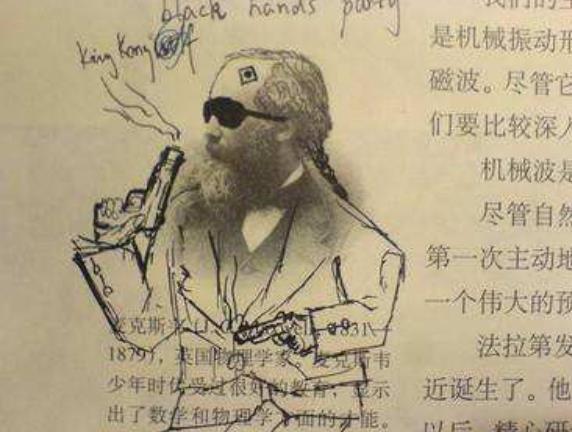 black hands party
King Kong
麦克斯韦(J.C.Maxwell, 1831—
1879)，英国物理学家。麦克斯韦
少年时代受过很好的教育，显示
出了数学和物理学方面的才能。
我们的生
是机械振动形
磁波。尽管它
们要比较深入
机械波是
尽管自然
第一次主动地
一个伟大的预
法拉第发
近诞生了。他
以后，精心研